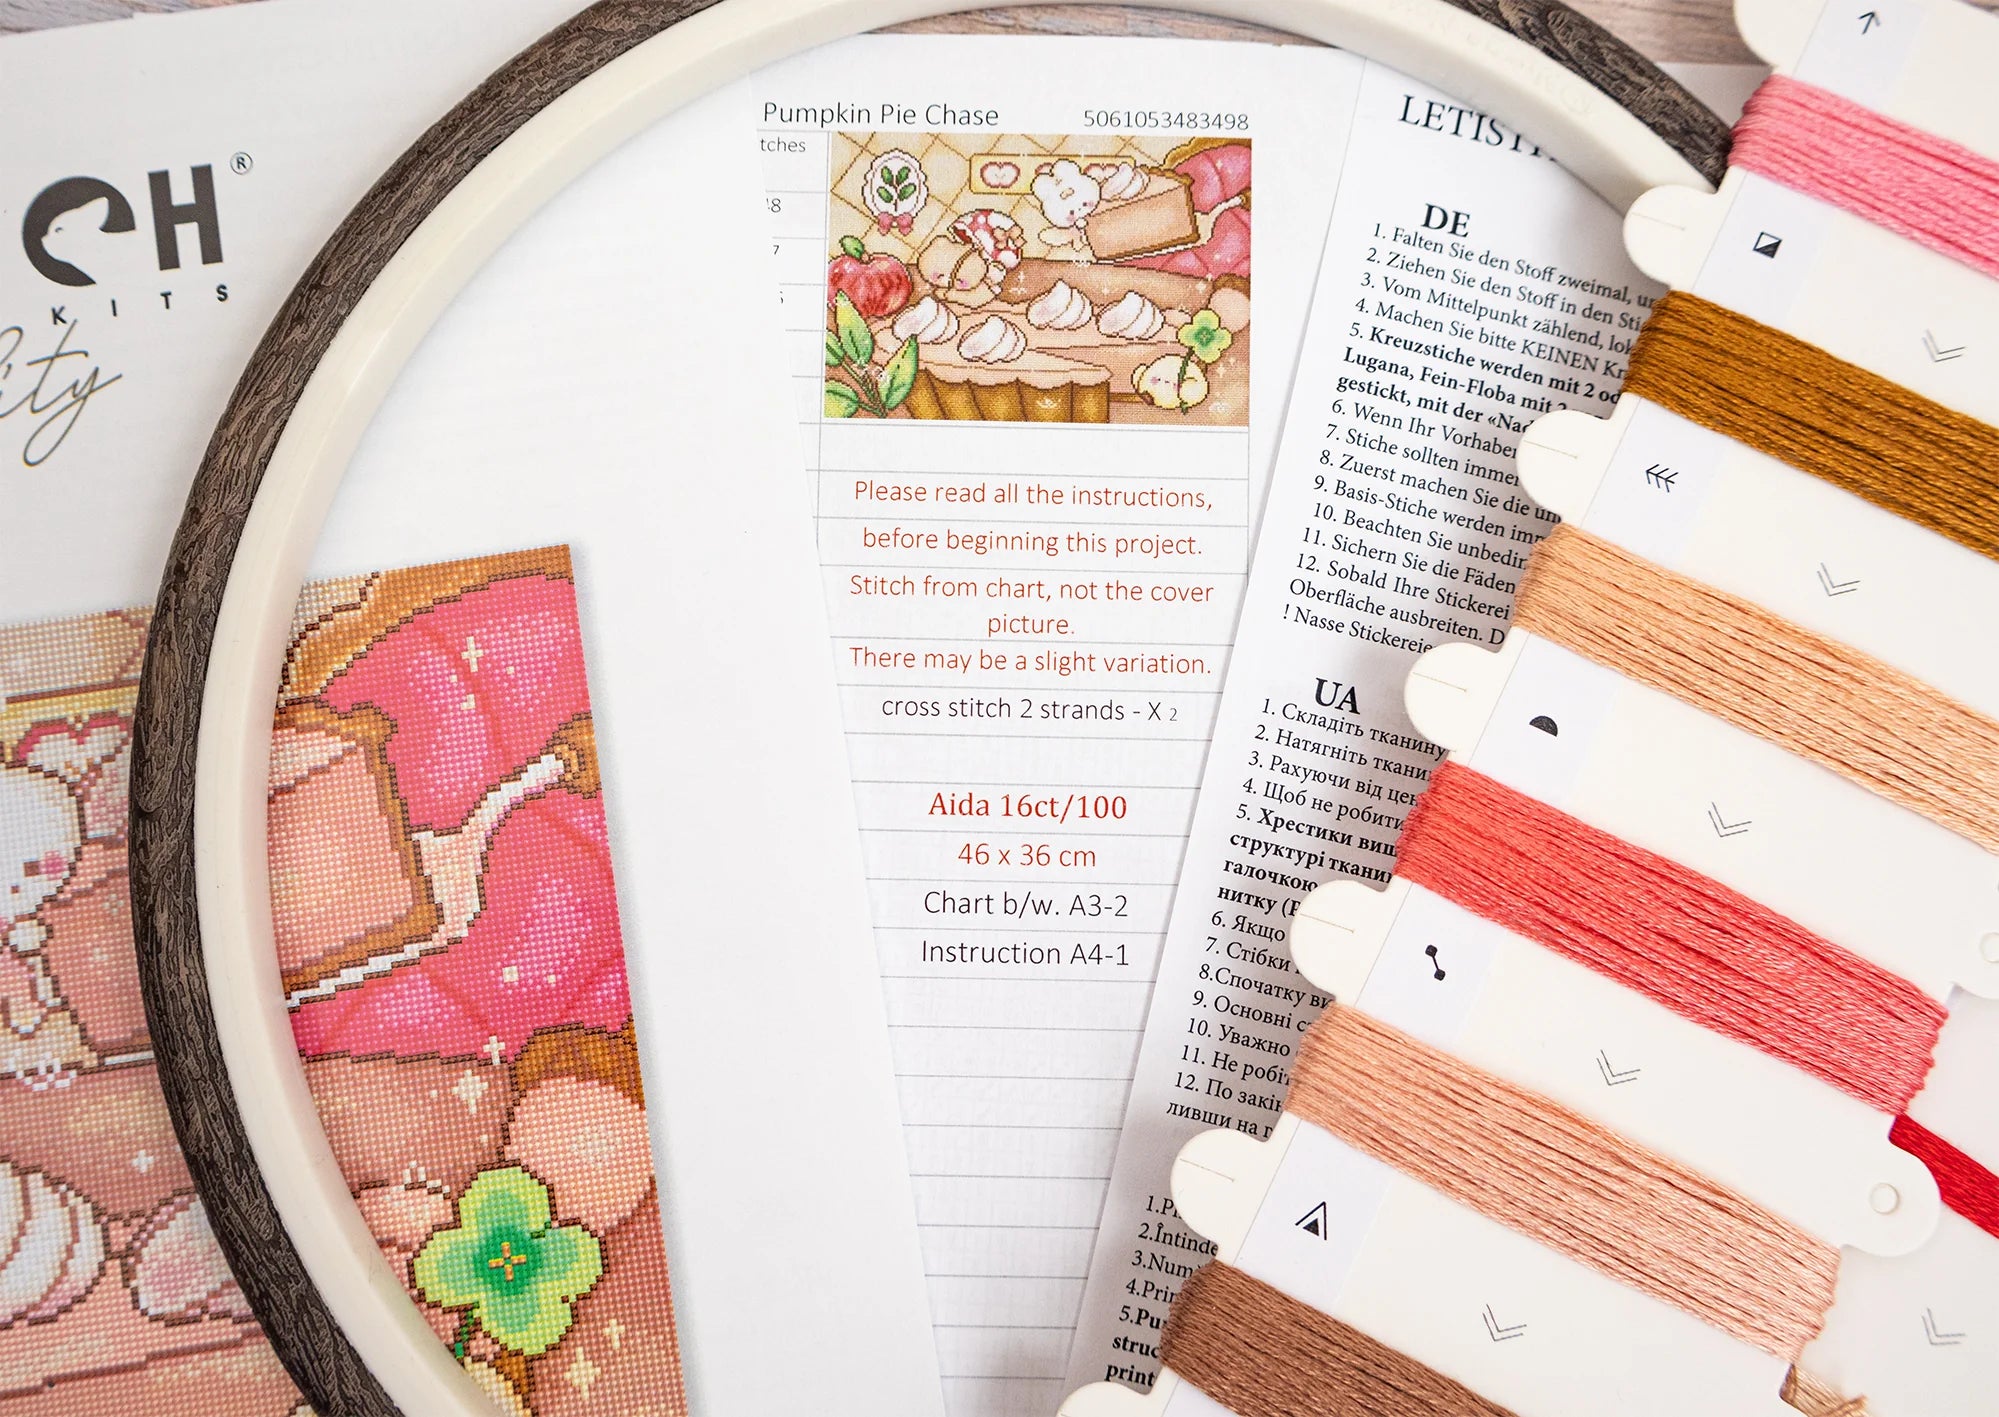 CH®
KITS
Pumpkin Pie Chase 5061053483498
tches
Please read all the instructions,
before beginning this project.
Stitch from chart, not the cover
picture.
There may be a slight variation.
cross stitch 2 strands - X 2
Aida 16ct/100
46 x 36 cm
Chart b/w. A3-2
Instruction A4-1
LETISTI
DE
1. Falten Sie den Stoff zweimal,
2. Ziehen Sie den Stoff in den
3. Vom Mittelpunkt zählend,
4. Machen Sie bitte KEINEN
5. Kreuzstiche werden mit 2
Lugana, Fein-Floba mit
gestickt, mit der
6. Wenn Ihr
7. Stiche sollten
8. Zuerst machen Sie die
9. Basis-Stiche werden
10. Beachten Sie
11. Sichern Sie die Fäden
12. Sobald Ihre Stickerei
Oberfläche ausbreiten. D
! Nasse
UA
1. Складіть тканину
2. Натягніть
3. Рахуючи від
4. Щоб не робити
5. Хрестики
структурі
галочкою
нитку (
6. Якщо
7. Стібки
8.Спочатку
9. Основні
10. Уважно
11. Не
12. По
ливши на
2.Întinde
5.
print